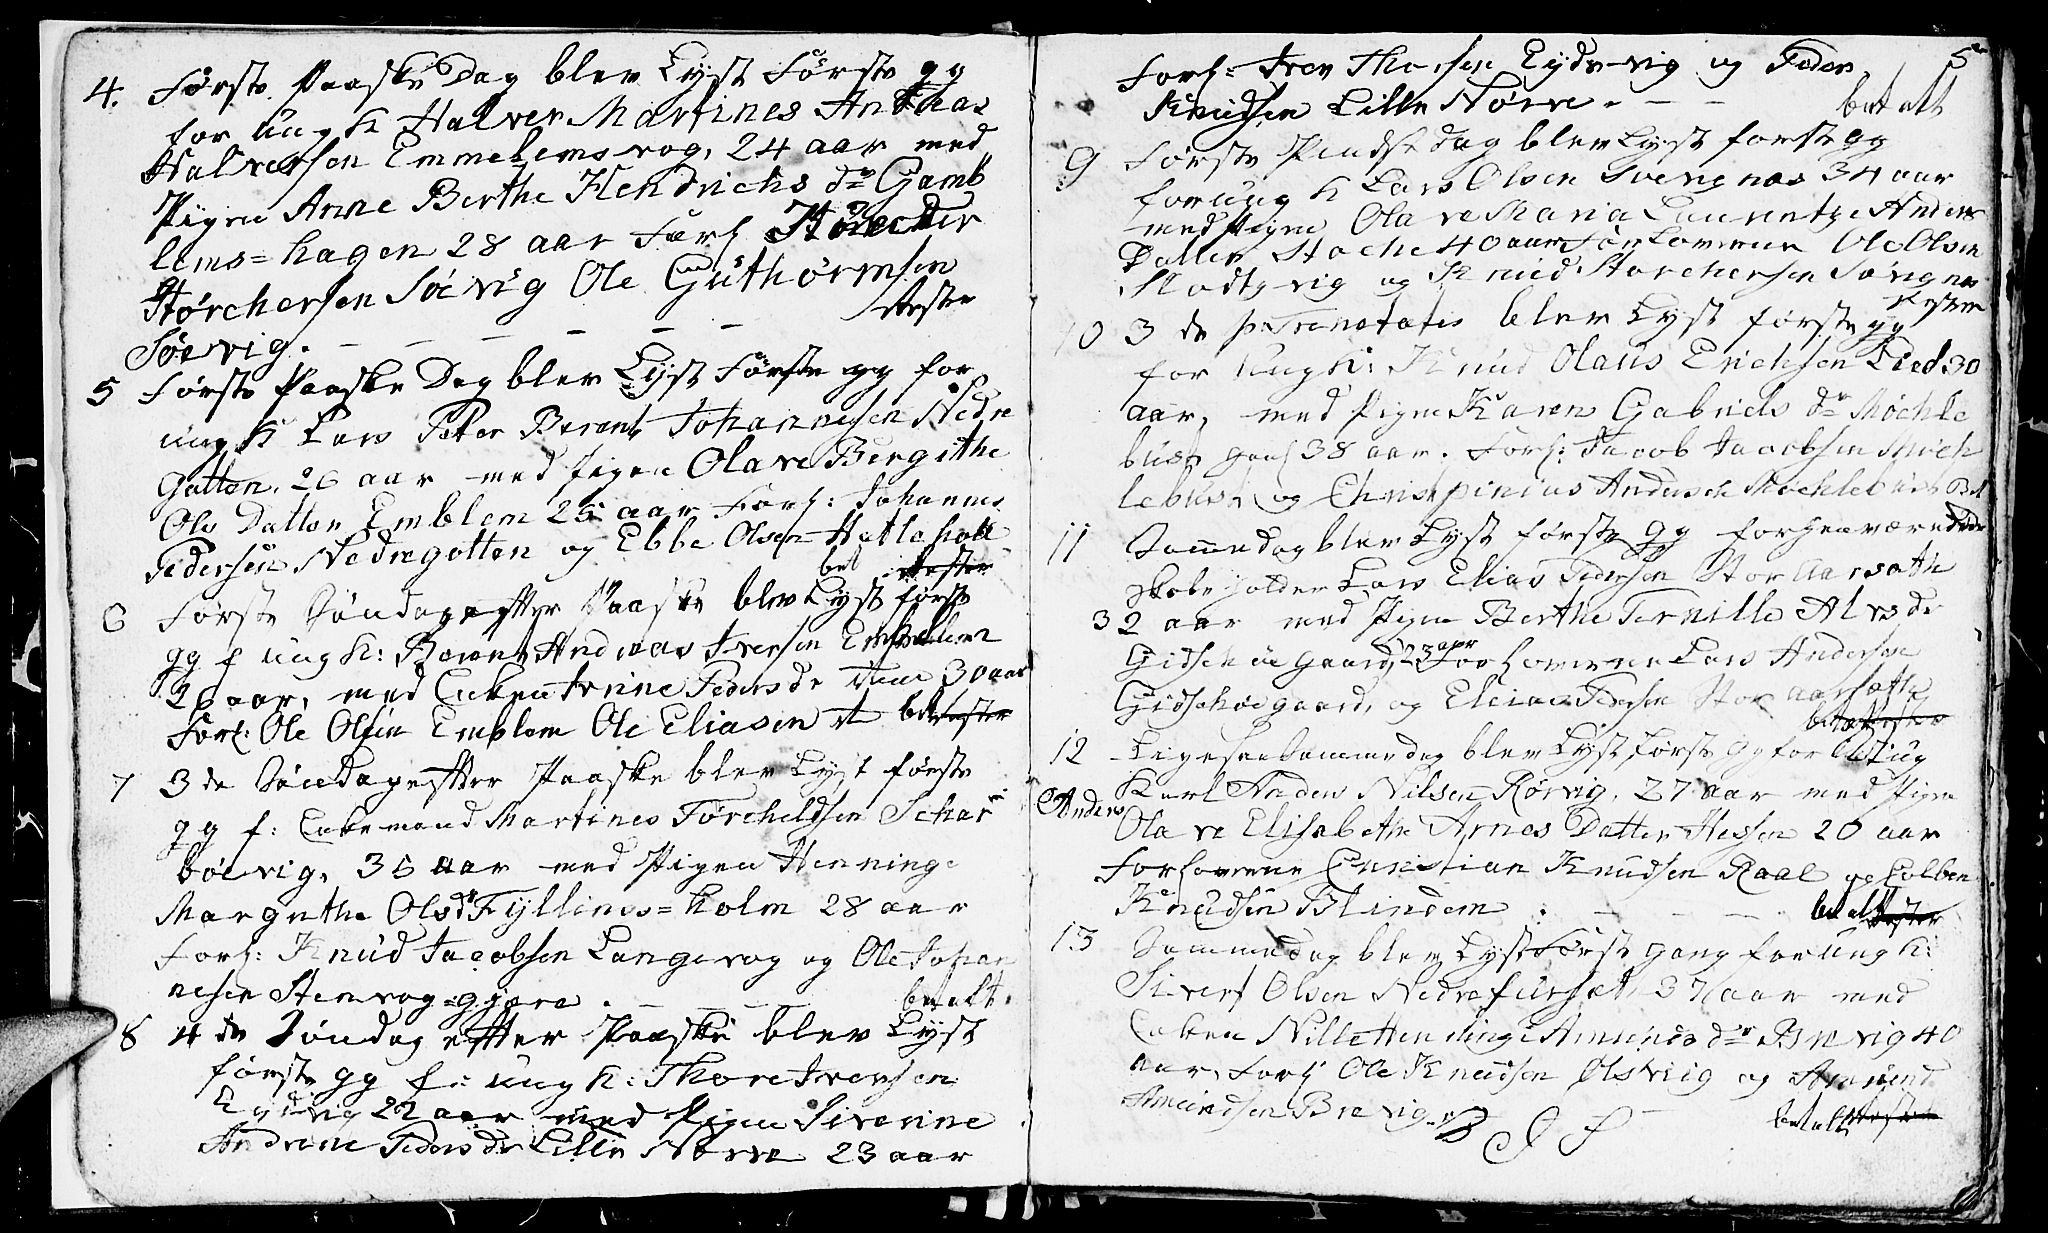 4. Første Paaske Dag blev Lyst Første gg
for ung K Halver Martines Andreas
Halversen Emmelemsvog, 24 aar med
Pigen Anne Berthe Hendrichs dr Gamb
lems=hagen 28 aar Forl
Størchersen Søevig Ole Guthormsen
Søevig. - - - - - Rester
5 Første Paaske Dag blev Lyst Første gg for
ung K Lars Peter Berent Johannesen Nedre
Gotten, 26 aar med Pigen Olave Bergithe
Ols Datter Emblem 25 aar Forl: Johannes
Pedersen Nedregotten og Ebbe Olsen Hatlehoel
bet Rester
6 Første Søndag efter Paaske blev Lyst første
gg f ung K: Berent Andreas Iversen Emblem
26 aar, med Enken Irine Peders dr 30 aar
Forl: Ole Olsen Emblem Ole Eliasen bet Rester
7 3de Søndag efter Paaske blev Lyst første
gg f: Enkemand Martines Torcheldsen Schar
bøevig, 35 aar med Pigen Henninge
Margrethe Ols dr Fyllings=holm 28 aar
Forl: Knud Jacobsen Langevog og Ole Johan
nesen Stenvog=gjære. - - - betalt.
8 4de Søndag efter Paaske blev Lyst
første gg f: ung K: Thore Iversen
Eydsvig 22 aar med Pigen Siverine
Andrene Peders dr Lille Nørve 23 aar
5
Forl: Iver Thorsen Eydsvig og Peder
Knudsen Lille Nørve. - - betalt
9 Første Pindse dag blev Lyst første gg
for ung K Lars Olsen 34 aar
med Pigen Olave Maria Laurentze Anders
Datter Stoche 40 aar Forlovere Ole Olsen
Slodtzvig og Knud Storchersen
Rester
10 3de p Trenetatis blev Lyst første gg
for ung K: Knud Olaus Erichsen Lied 30
aar, med Pigen Karen Gabriels dr Møchle
bust gaml 38 aar. Forl: Jacob Jacobsen Møch
lebust og Chrispinius Andersen Møchlebust Bet
11 Samme dag blev Lyst første gg for
Lars Elias Pedersen Stor Aarsæth
32 aar med Pigen Berthe Pernille Alvs dr
Gidschøe gaard, 23 aar Forlovere Lars Andersen
Gidschøe gaard, og Elias Pedersen Stor aarsæth
bet Rester
12 Ligesaa Samme dag blev Lyst første gg for ung
Karl Anders Nilsen Rørvig, 27 aar med Pigen
Anders
Olave Elisabethe Arnes Datter Hessen 20 aar
Forlovere Christian Knudsen Raal og Colben
Knudsen Blindem. - - - betalt Rester
13 Samme dag blev Lyst Første gang for ung K:
Sivert Olsen Nedrefurset 37 aar med
Enken Nille Henninge Amunds dr Brevig 40
aar, Forl Ole Knudsen Ølsvig og Amund
Amundsen Brevig. betalt Rester